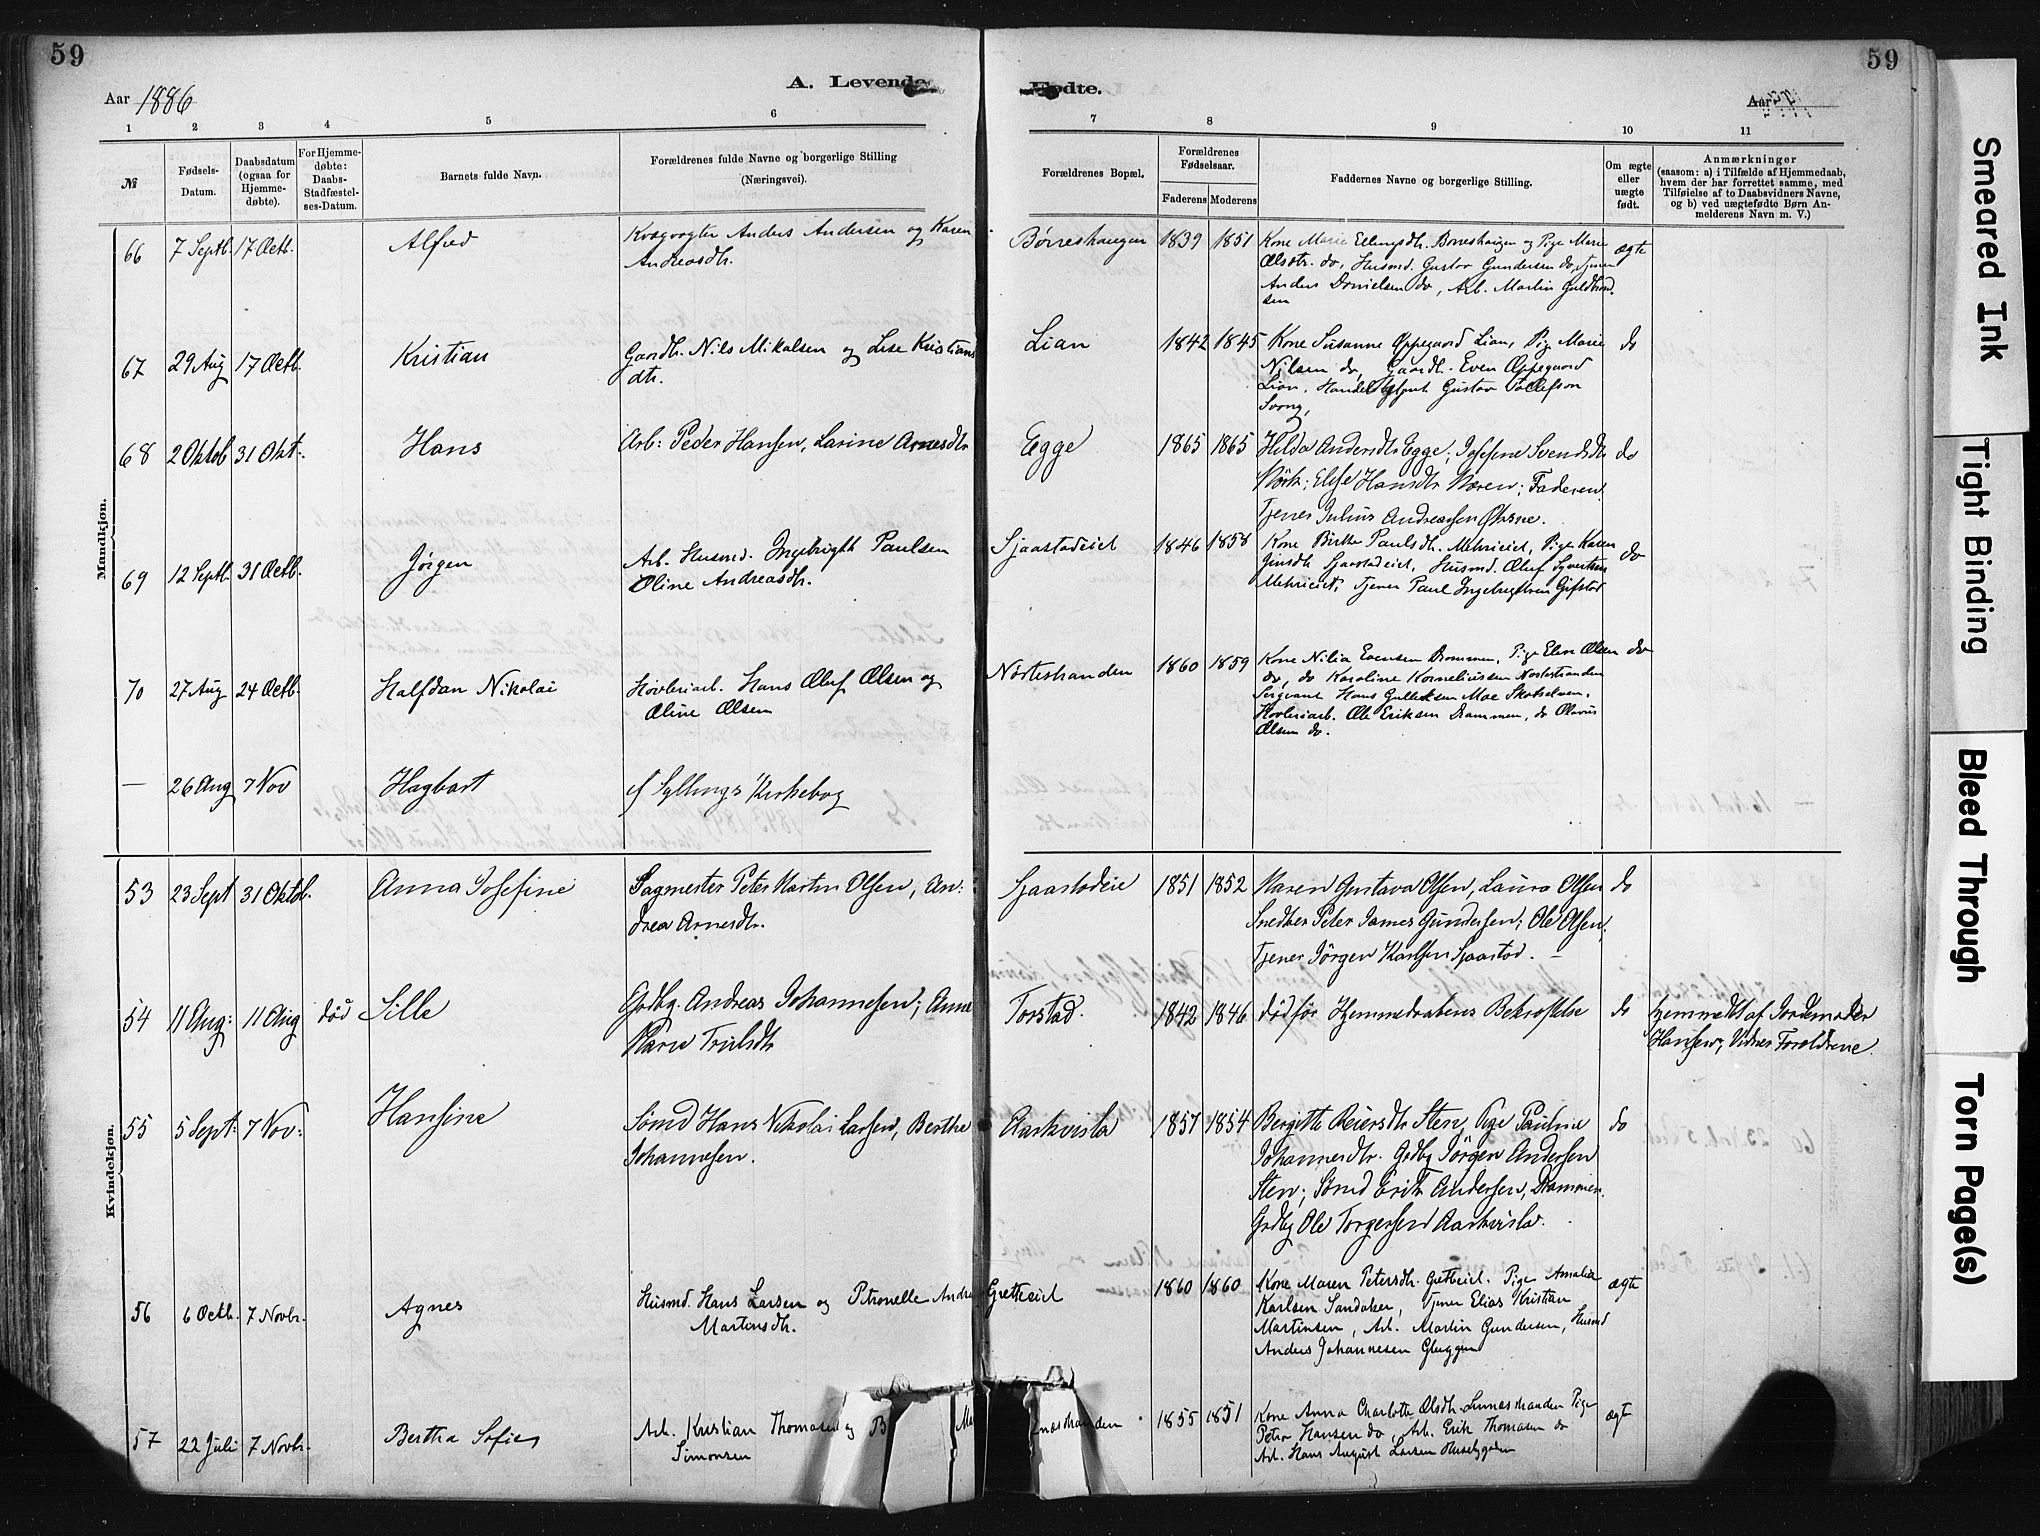 59
59
Aar 1886
A. Levende Fødte.
Aar
1 2 3 4 5 6 7 8 9 10 11
№
Fødsels-Datum.
Daabsdatum (ogsaa for Hjemme-døbte).
For Hjemme-døbte: Daabs-Stadfæstel-ses-Datum.
Barnets fulde Navn.
Forældrenes fulde Navne og borgerlige Stilling (Næringsvei).
Forældrenes Bopæl.
Forældrenes Fødselsaar.
Faderens Moderens
Faddernes Navne og borgerlige Stilling.
Om ægte eller uægte født.
Anmærkninger (saasom: a) i Tilfælde af Hjemmedaab, hvem der har forrettet samme, med Tilføielse af to Daabsvidners Navne, og b) ved uægtefødte Børn An-melderens Navn m. V.)
Mandkjøn.
66 7 Septb. 17 Octb. Alfred Kvægvogter Anders Andersen og Karen Børreshaugen 1839 1851 Kone Marie Ellingsdtr. Børreshaugen og Pige Marie ægte
Andreasdtr. Olsdtr. do, Husmd. Gustav Gundersen do, Tjener
Anders Danielsen do, Arb. Martin Guldbrand-
sen
67 29 Aug 17 Octb. Kristian Gaardbr. Nils Mikalsen og Lise Kristians Lian 1842 1845 Kone Susanne Oppegaard Lian, Pige Marie do
dtr. Nilsen do, Gaardbr. Even Oppegaard
Lian, Gustav Tollefson
68 2 Oktob 31 Okt. Hans Arb: Peder Hansen, Larine Arnesdtr Egge 1865 1865 Hilda Andersdtr Egge; Josefine Svendsdtr do
Elise Hansdtr Næren; Faderen.
Tjener Julius Andreassen
69 12 Septb. 31 Octb. Jørgen Arb. Husmd. Ingebrigth Paulsen Sjaastadeiet 1846 1858 Kone Birthe Paulsdtr. Pige Karen do
Oline Andreasdtr. Sjaastadeiet, Husmd. Oluf Syvertsen
Tjener Paul Ingebrigtsen Gifstad
70 27 Aug 24 Octb. Halfdan Nikolai Høvleriarb. Hans Oluf Olsen og Nørstestranden 1860 1859 Kone Nilia Evensen Drammen, Pige Elen Olsen do
Oline Olsen do, do Karoline Korneliussen Nørstestranden
Sergeant Hans Gulliksen Moe Skotselven,
Høvleriarb. Ole Eriksen Drammen, do Olavus
Olsen do.
— 26 Aug 7 Nov Hagbart cf Syllings Kirkebog
Kvindekjøn.
53 23 Sept 31 Oktob. Anna Josefine Sagmester Peter Martin Olsen, An- Sjaastadeie 1851 1852 Maren Gustava Olsen, Laura Olsen do
drea Arnesdtr. Snedker Peter James Gundersen; Ole Olsen;
Tjener Jørgen Karlsen Sjaastad. —
54 11 Aug: 11 Aug død Sille Grdbr. Andreas Johannesen; Anne Torstad. 1842 1846 død før Hjemmedaabens Bekræftelse do hjemmedøbt af Jordemoder
Marie Trulsdtr Hansen; Vidner Forældrene.
55 5 Sept: 7 Nov: Hansine Hans Nikolai Larsen, Berthe Aarkvisla 1857 1854 Bergitte Reiersdtr Sten, Pige Pauline do
Johannesen. Johannesdtr. Grdbr Jørgen Andersen
Sten; Erik Andersen, Drammen.
Grdbr Ole Torgersen Aarkvisla.
56 6 Octb. 7 Novbr. Agnes Husmd. Hans Larsen og Petronelle Andrea Gretheeiet 1860 1860 Kone Maren Petersdtr. Gretheeiet. Pige Amalie ægte
Martinsdtr. Karlsen Sandaker, Tjener Elias Kristian
Martinsen, Arb. Martin Gundersen, Husmd
Anders Johannesen Gluggen
57 22 Juli 7 Novbr. Bertha Sofie Arb. Kristian Thomasen og B 1855 1851 Kone Anna Charlotte Olsdtr. Linnesstranden Pige ægt
Simonsen Peter Hansen do, Arb. Erik Thomasen do
Arb. Hans August Larsen
Smeared Ink
Tight Binding
Bleed Through
Torn Page(s)